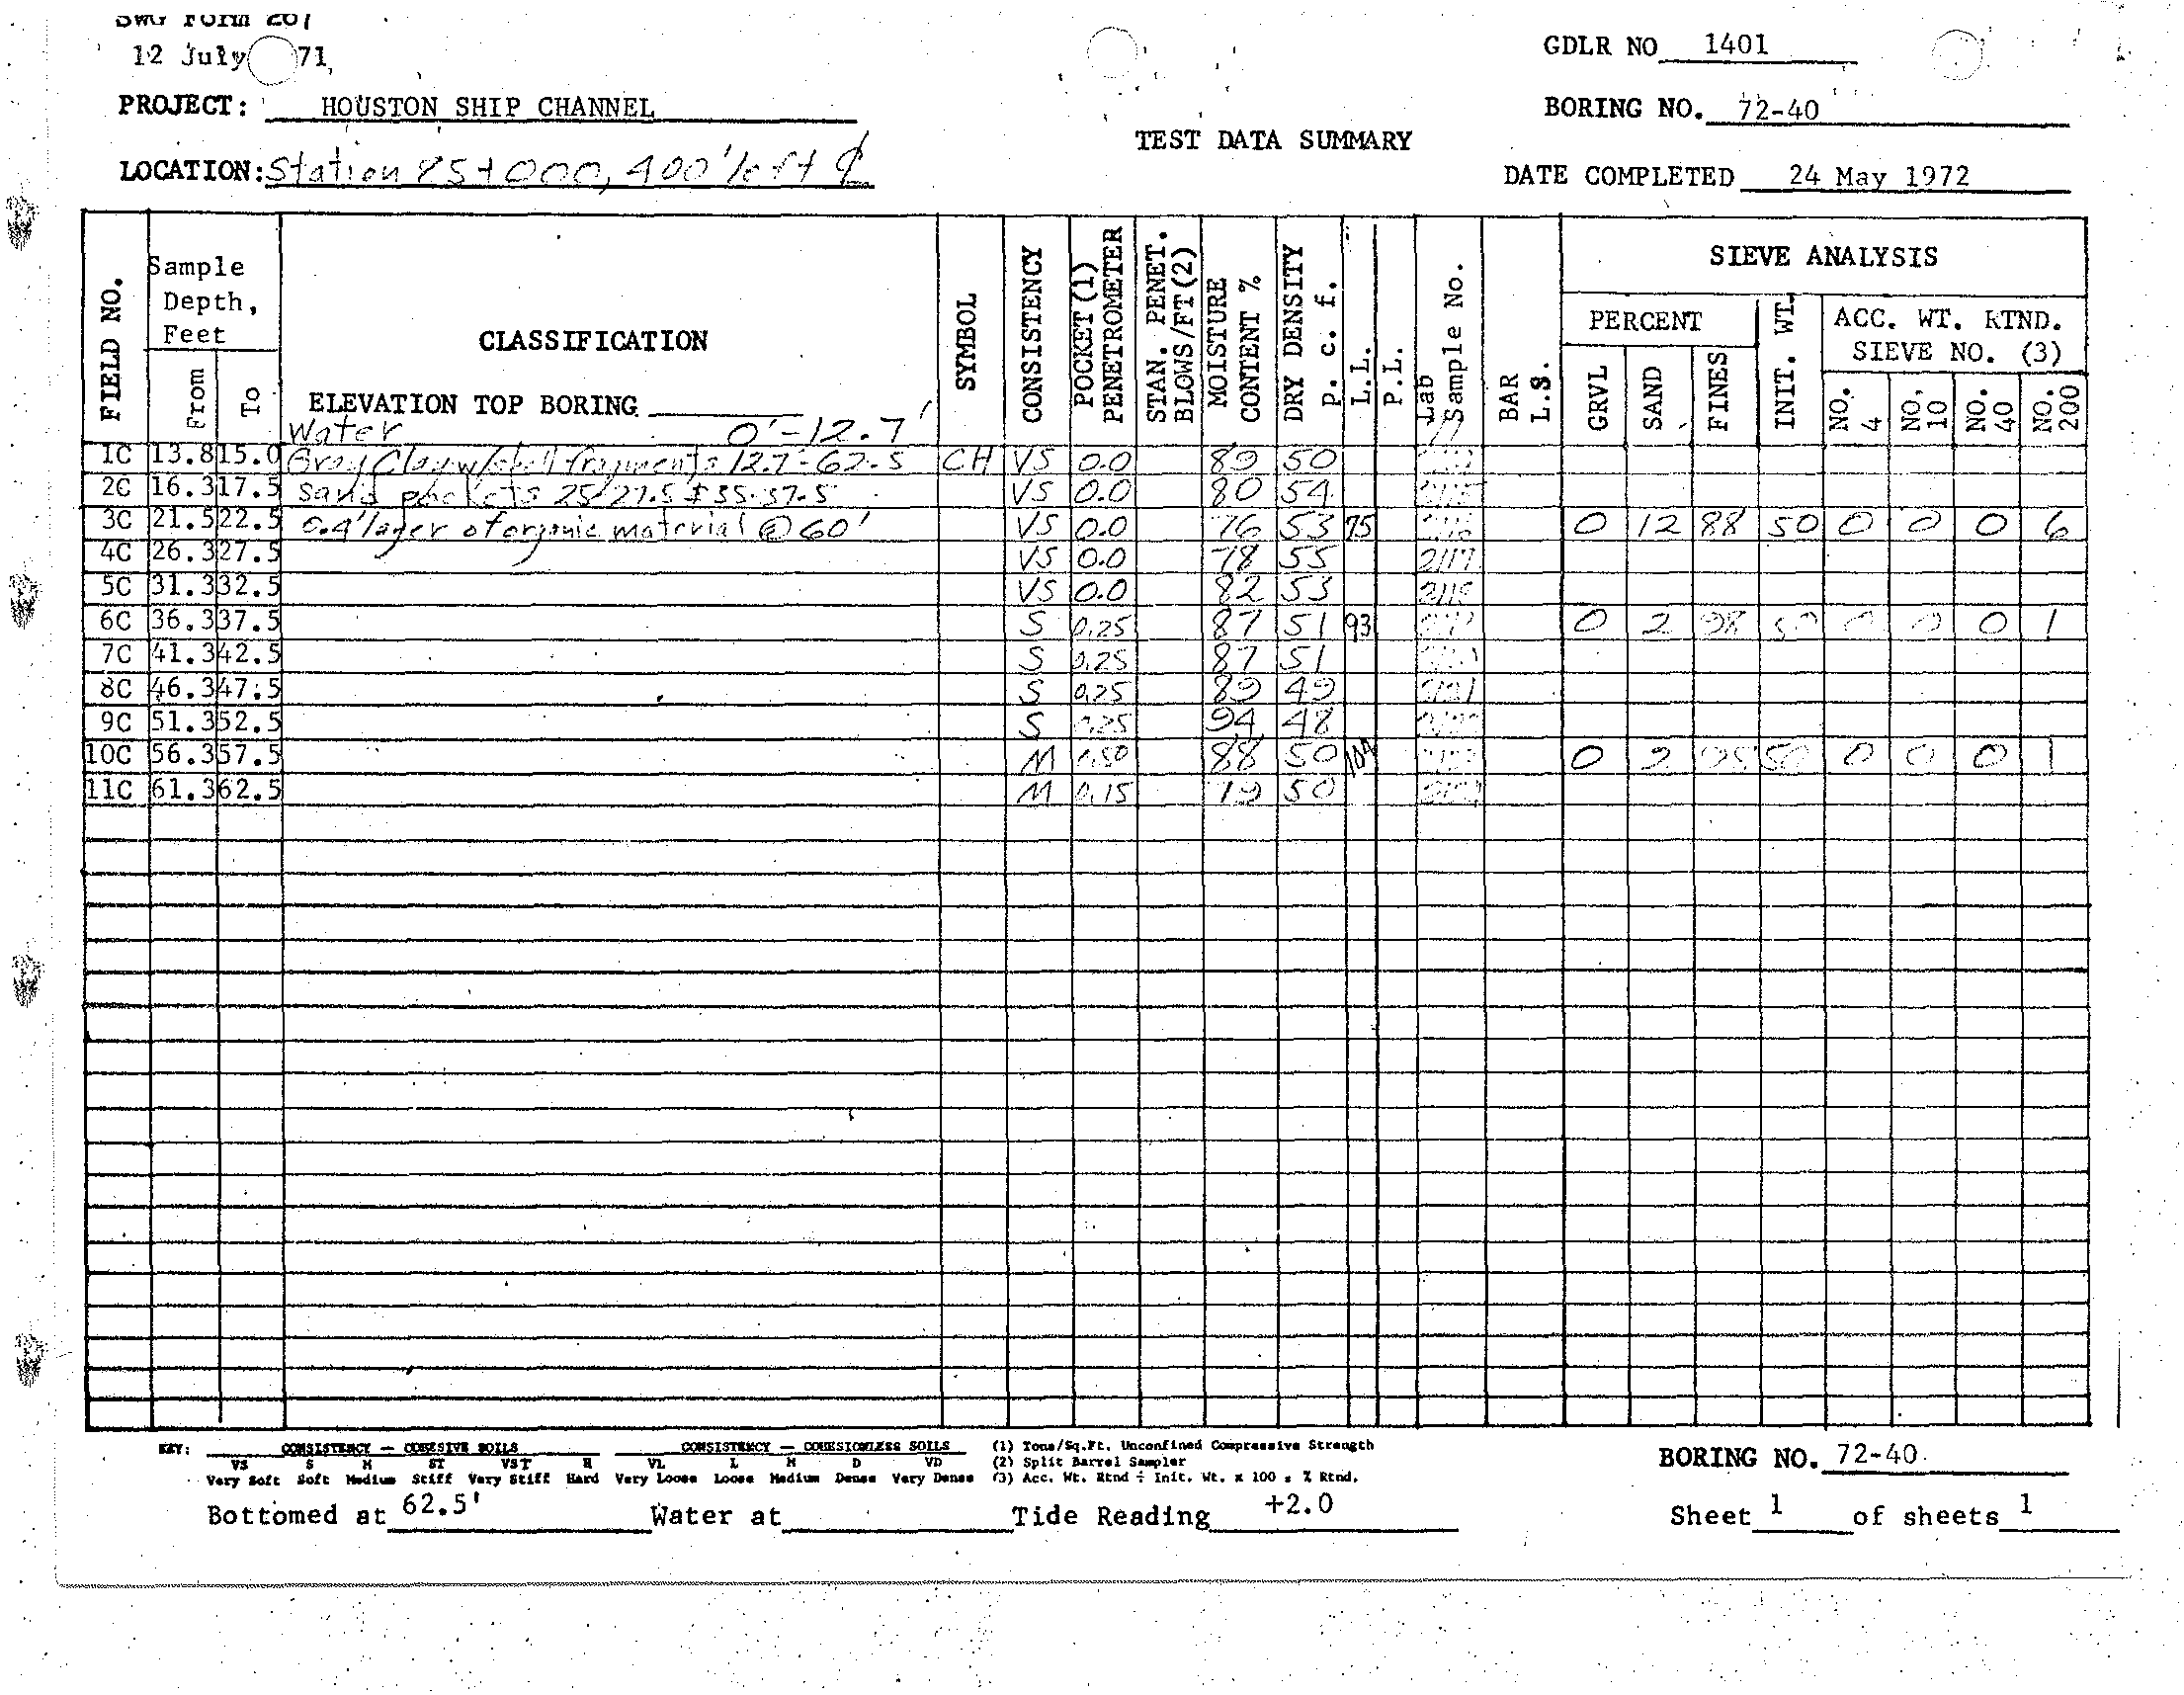 SWG Form 267
12 July 71
GDLR NO 1401
PROJECT: HOUSTON SHIP CHANNEL
BORING NO. 72-40
TEST DATA SUMMARY
LOCATION: Station 85+000, 400' left ℄
DATE COMPLETED 24 May 1972
FIELD NO.
Sample Depth, Feet
From
To
CLASSIFICATION
ELEVATION TOP BORING
SYMBOL
CONSISTENCY
POCKET (1) PENETROMETER
STAN. PENET. BLOWS/FT (2)
MOISTURE CONTENT %
DRY DENSITY P. c. f.
L.L.
P.L.
Lab Sample No.
BAR L.S.
SIEVE ANALYSIS
PERCENT
GRVL
SAND
FINES
INIT. WT.
ACC. WT. RTND. SIEVE NO. (3)
NO. 4
NO. 10
NO. 40
NO. 200
Water 0'-12.7'
1C 13.8 15.0 Gray Clay w/shell fragments 12.7-62.5 CH VS 0.0 89 50
2C 16.3 17.5 Sand pockets 25-27.5 & 35-37.5 VS 0.0 80 54
3C 21.5 22.5 0.4' layer of organic material @ 60' VS 0.0 76 53 75 0 12 88 50 0 0 0 6
4C 26.3 27.5 VS 0.0 78 55 2117
5C 31.3 32.5 VS 0.0 82 53
6C 36.3 37.5 S 0.25 87 51 93 0 2 98 50 0 0 0 1
7C 41.3 42.5 S 0.25 87 51
8C 46.3 47.5 S 0.25 89 49
9C 51.3 52.5 S 0.25 94 48
10C 56.3 57.5 M 0.50 88 50 104 0 2 98 50 0 0 0 1
11C 61.3 62.5 M 0.15 79 50
KEY: CONSISTENCY — COHESIVE SOILS CONSISTENCY — COHESIONLESS SOILS (1) Tons/Sq.Ft. Unconfined Compressive Strength
VS S M ST VST H VL L M D VD (2) Split Barrel Sampler
Very Soft Soft Medium Stiff Very Stiff Hard Very Loose Loose Medium Dense Very Dense (3) Acc. Wt. Rtnd ÷ Init. Wt. x 100 = % Rtnd.
BORING NO. 72-40
Bottomed at 62.5' Water at Tide Reading +2.0
Sheet 1 of sheets 1